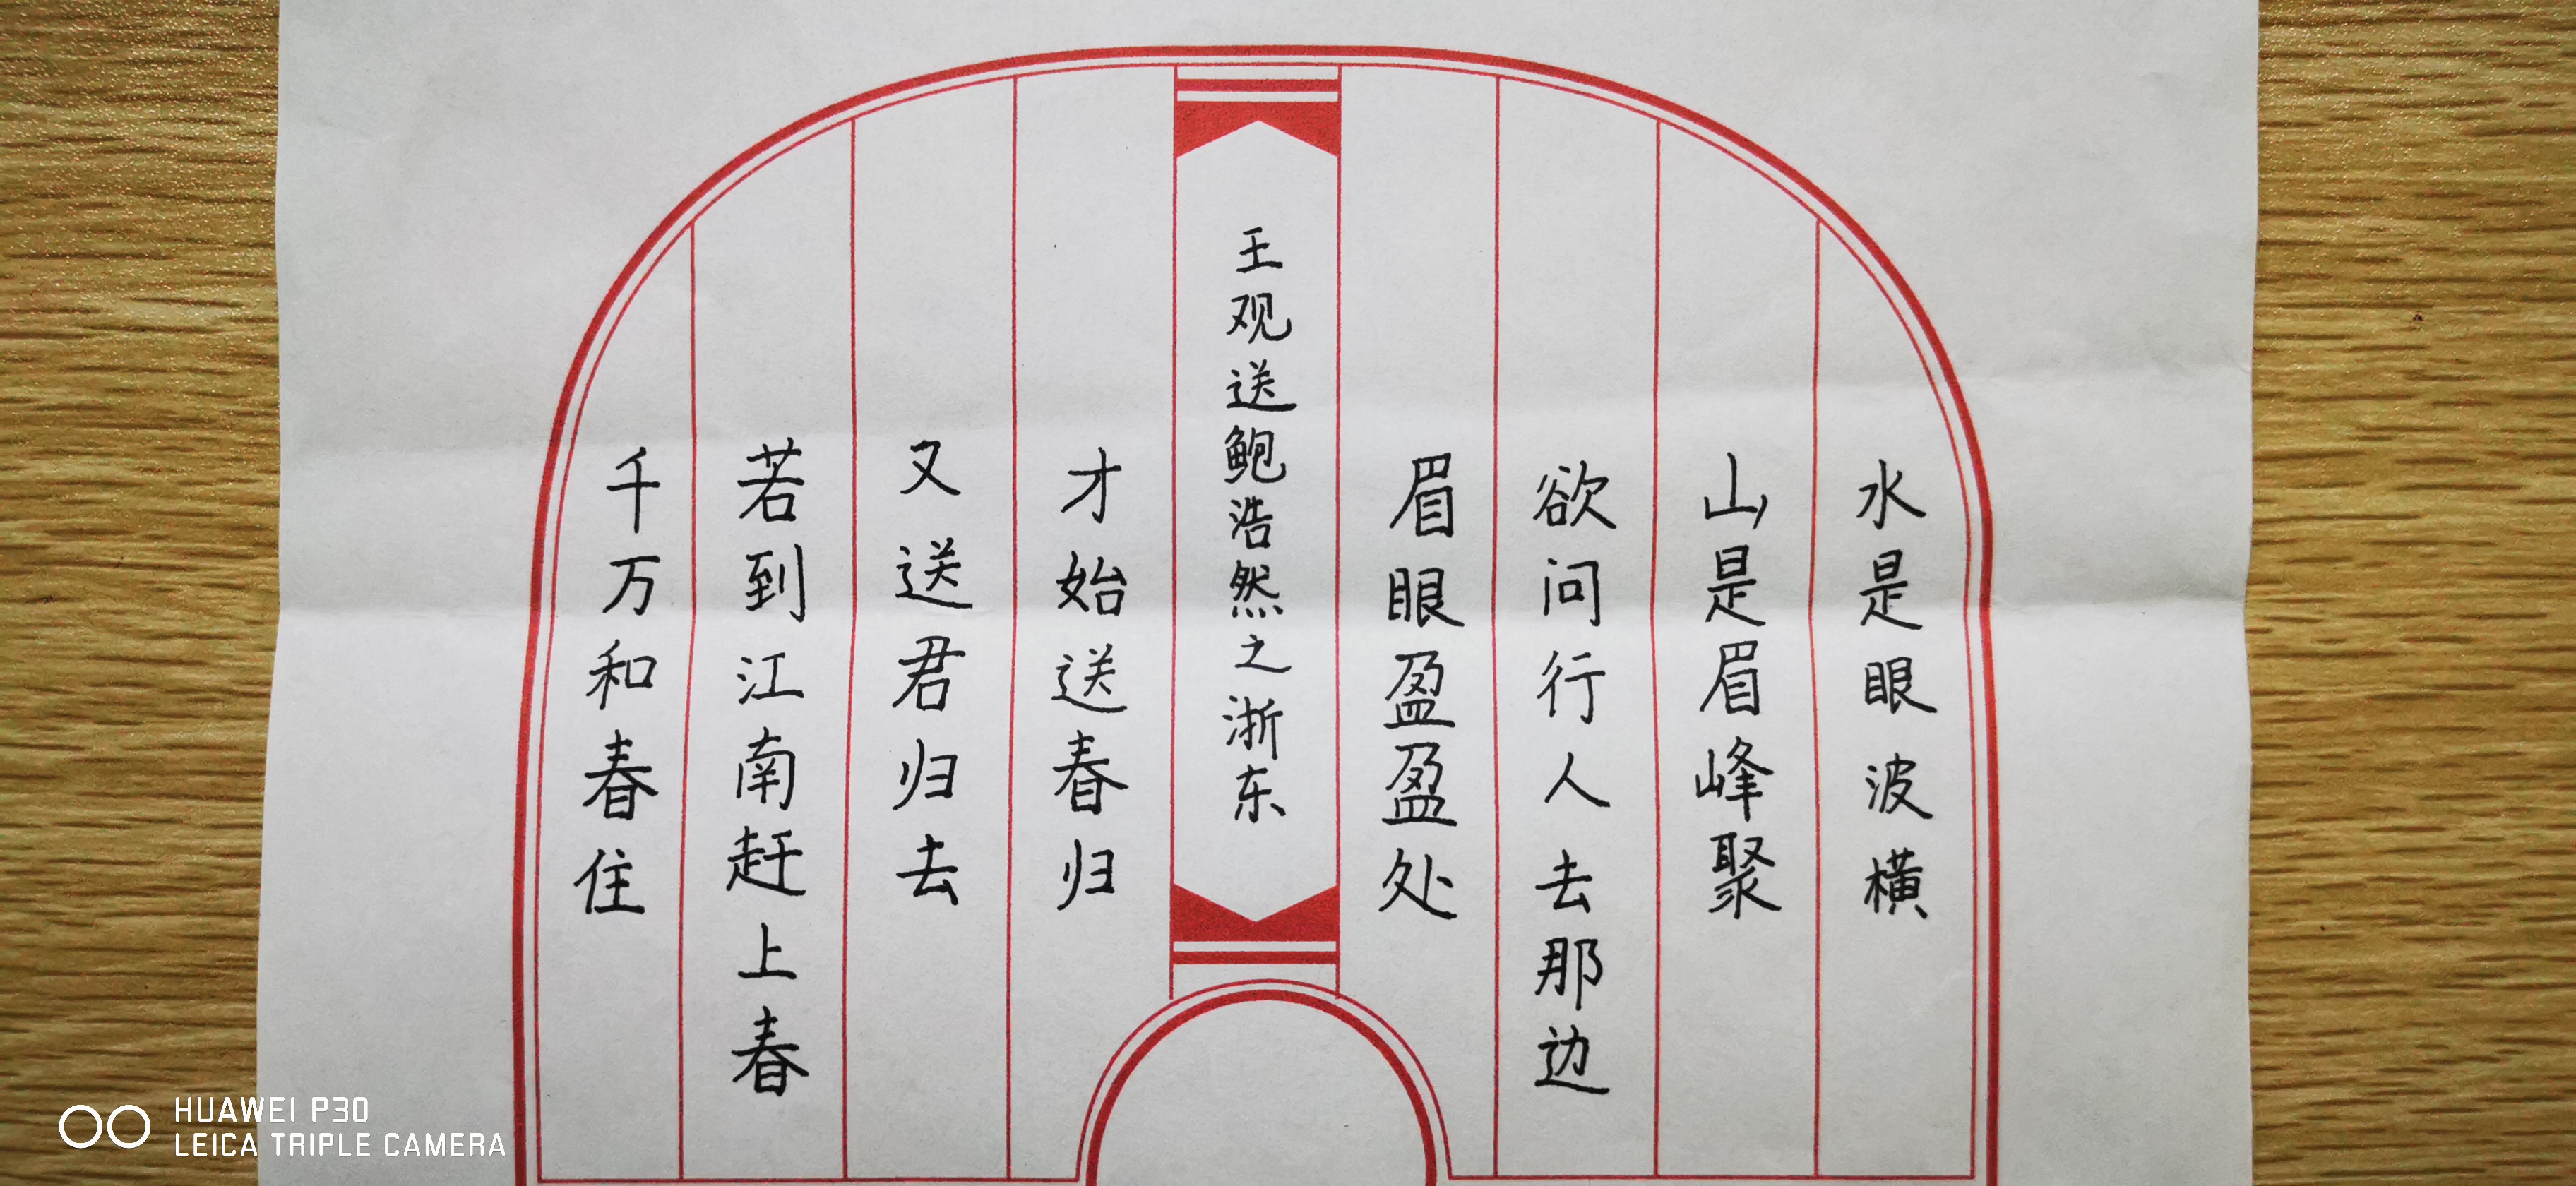 水是眼波横
山是眉峰聚
欲问行人去那边
眉眼盈盈处
王观送鲍浩然之浙东
才始送春归
又送君归去
若到江南赶上春
千万和春住
HUAWEI P30
LEICA TRIPLE CAMERA